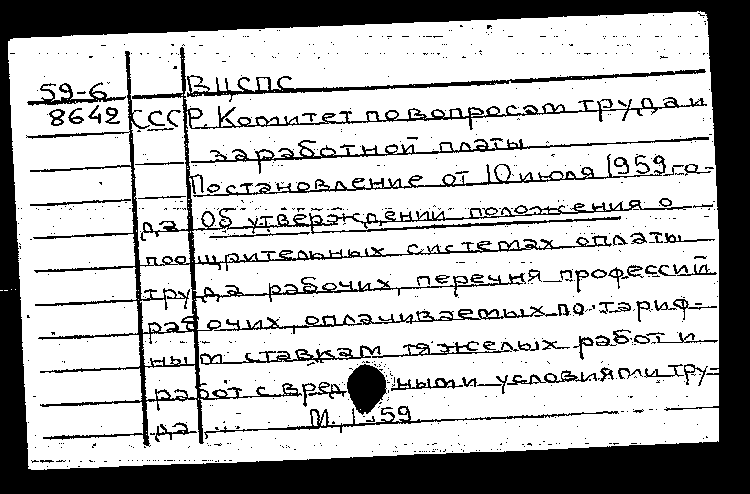 59-6 ВЦСПС
8642 СССР. Комитет по вопросам труда и
заработной платы
Постановление от 10 июля 1959 го-
да Об утверждении положения о
поощрительных системах оплаты
труда рабочих, перечня профессий
рабочих, оплачиваемых по тариф-
ным ставкам тяжелых работ и
работ с вредными условиями тру-
да ... М., 1959.